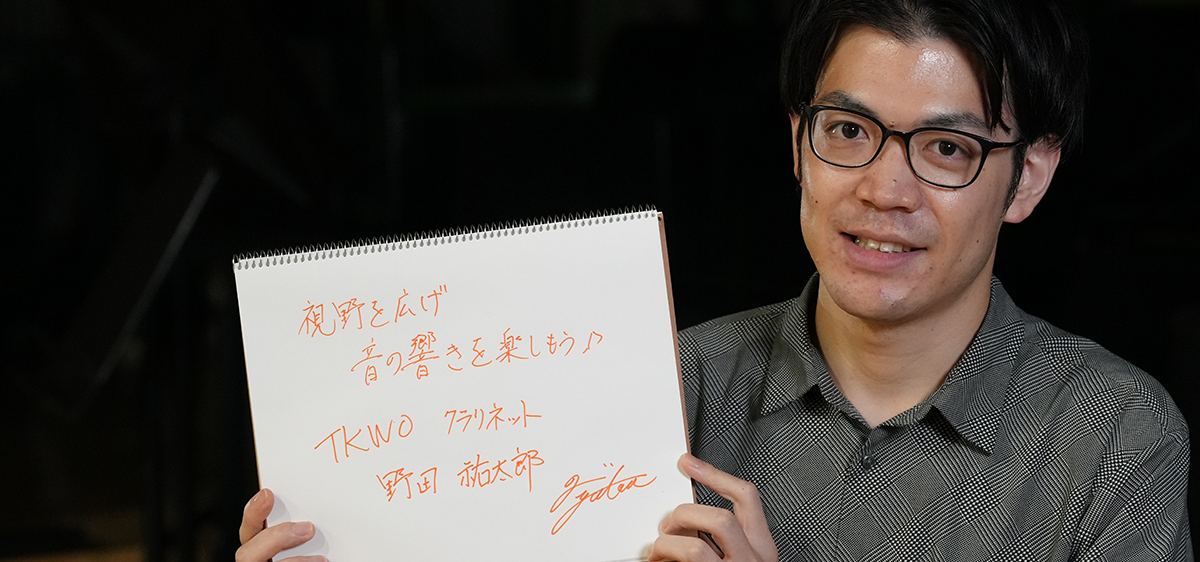 視野を広げ
音の響きを楽しもう♪
TKWO クラリネット
野田 祐太郎